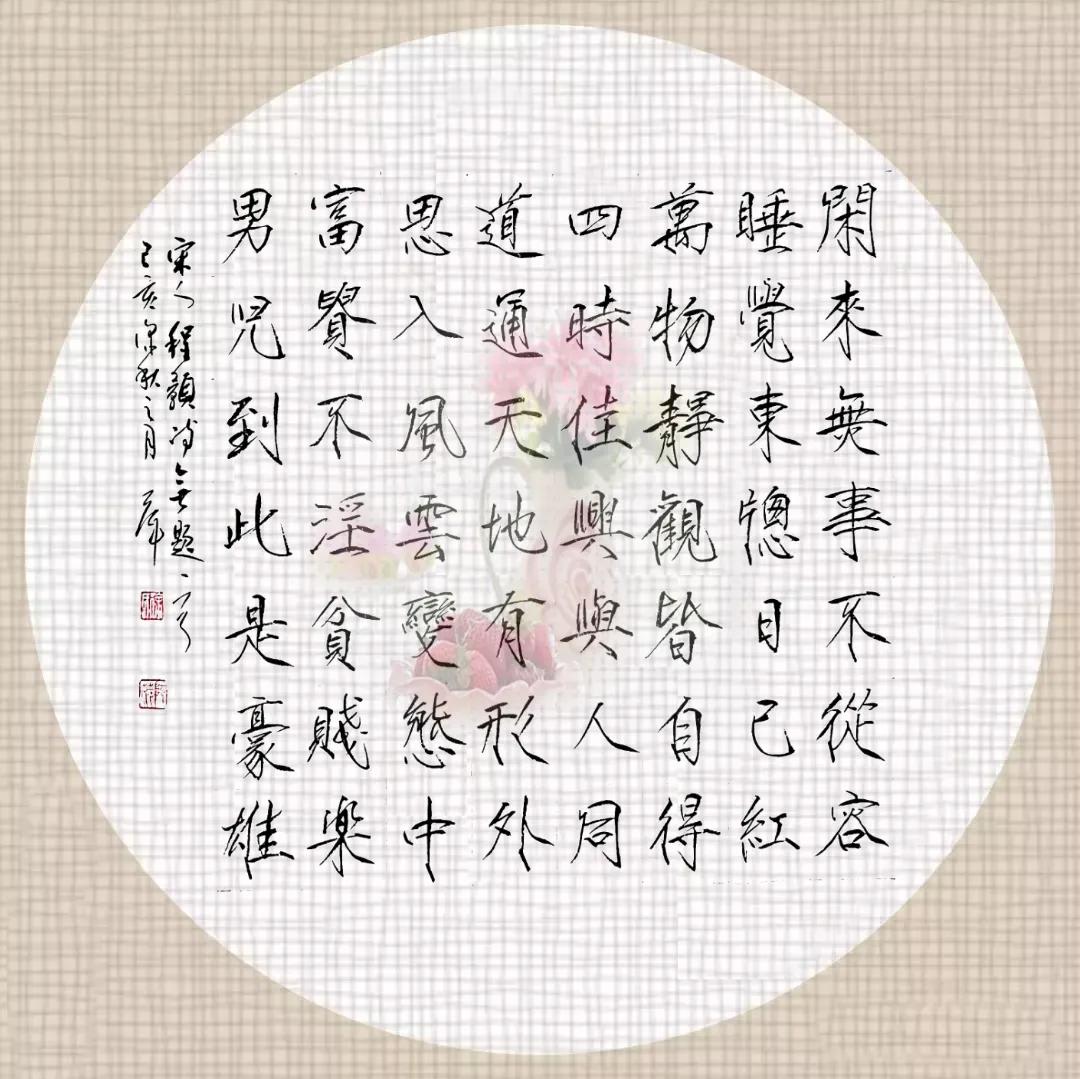 閑來無事不從容
睡覺東牕日已紅
萬物靜觀皆自得
四時佳興與人同
道通天地有形外
思入風雲變態中
富貴不淫貧賤樂
男兒到此是豪雄
宋人程顥詩無題一首
己亥深秋之月